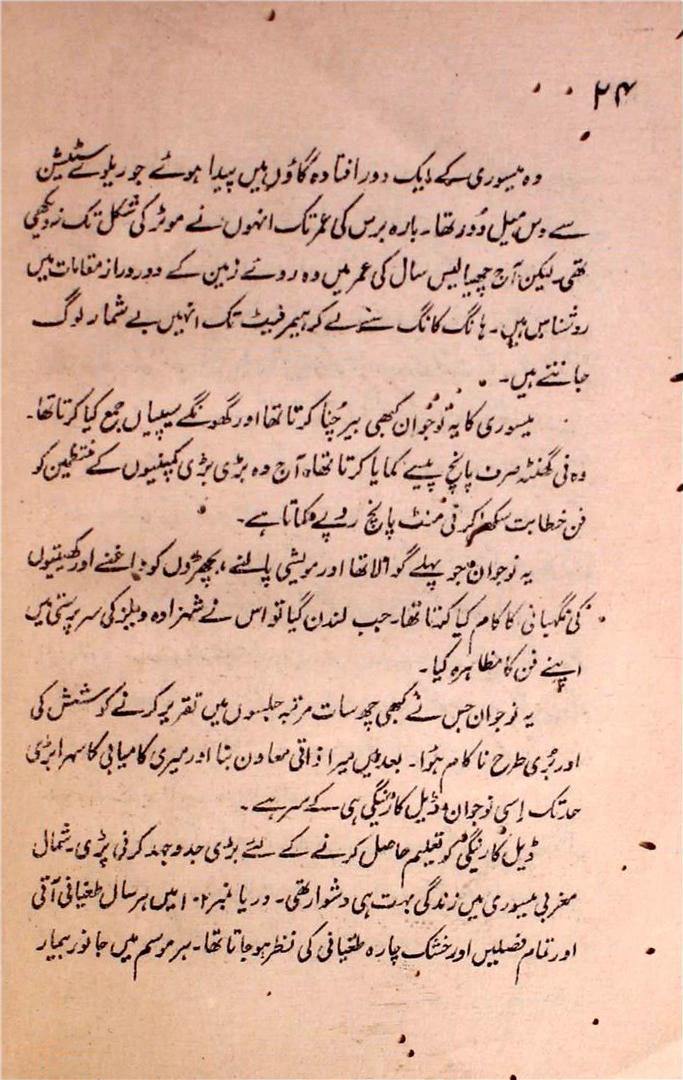 ۲۴
وہ میسوری کے ایک دور افتادہ گاؤں میں پیدا ہوئے جو ریلوے سٹیشن
سے دس میل دُور تھا۔ بارہ برس کی عمر تک انہوں نے موٹر کی شکل تک نہ دیکھی
تھی۔ لیکن آج چھیالیس سال کی عمر میں وہ روئے زمین کے دور دراز مقامات میں
روشناس ہیں۔ ہانگ کانگ سے لے کر ہیمرفیٹ تک انہیں بے شمار لوگ
جانتے ہیں۔
میسوری کا یہ نوجوان کبھی بیر چُنا کرتا تھا اور گھونگے سیپیاں جمع کیا کرتا تھا۔
وہ فی گھنٹہ صرف پانچ پیسے کمایا کرتا تھا۔ آج وہ بڑی بڑی کمپنیوں کے منتظمین کو
فن خطابت سکھا کر فی منٹ پانچ روپے کماتا ہے۔
یہ نوجوان جو پہلے گوالا تھا اور مویشی پالنے، بچھڑوں کو داغنے اور کھیتیوں
کی نگہبانی کا کام کیا کرتا تھا۔ جب لندن گیا تو اس نے شہزادہ ویلز کی سرپرستی میں
اپنے فن کا مظاہرہ کیا۔
یہ نوجوان جس نے کبھی چھ سات مرتبہ جلسوں میں تقریر کرنے کی کوشش کی
اور بُری طرح ناکام ہوا۔ بعد میں میرا ذاتی معاون بنا اور میری کامیابی کا سہرا بڑی
حد تک اِسی نوجوان ڈیل کارنیگی ہی کے سر ہے۔
ڈیل کارنیگی کو تعلیم حاصل کرنے کے لئے بڑی جدوجہد کرنی پڑی۔ شمال
مغربی میسوری میں زندگی بہت ہی دشوار تھی۔ دریا نمبر ۱۰۲ میں ہر سال طغیانی آتی
اور تمام فصلیں اور خشک چارہ طغیانی کی نظر ہو جاتا تھا۔ ہر موسم میں جانور بیمار